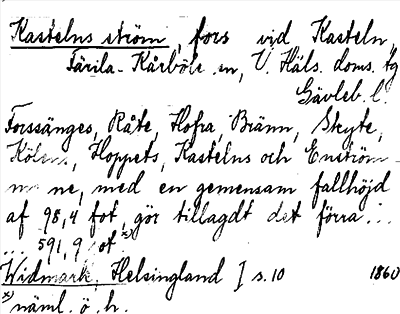 Kastelns ström, fors vid Kasteln,
Färila-Kårböle sn, V. Häls. doms. tg
Gävleb. l.
Forssänges, Råte, Hofra, Bränn, Skyte,
Kölens, Hoppets, Kastelns och Enström-
ne, med en gemensam fallhöjd
af 98,4 fot, gör tillagdt det förra ...
... 591,9 fot x)
Widmark, Helsingland I s. 10 1860
x) näml. ö. h.